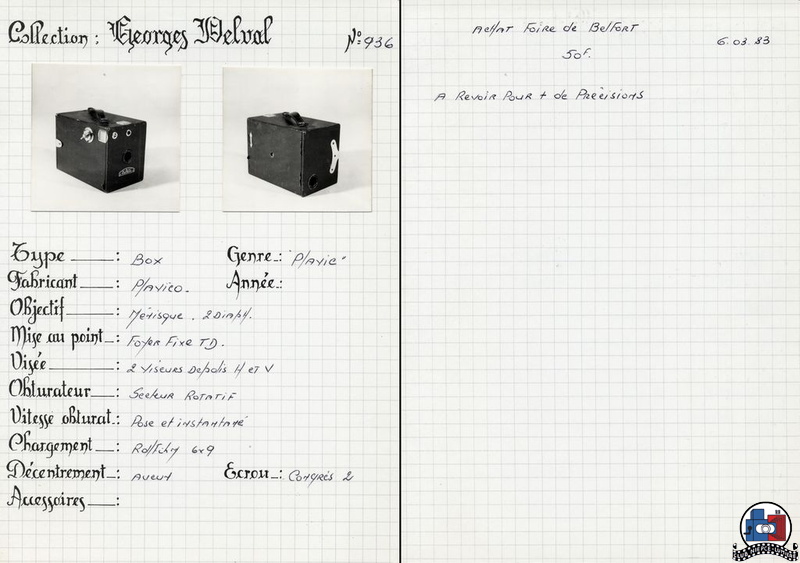 Collection : Georges Delval
No 936
Type : Box
Genre : "Plavic"
Fabricant : Plavico.
Année :
Objectif : Ménisque . 2 Diaph.
Mise au point : Foyer Fixe T.D.
Visée : 2 Viseurs Depolis H et V
Obturateur : Secteur Rotatif
Vitesse obturat. : Pose et instantané
Chargement : Rollfilm 6x9
Décentrement : Aucun
Ecrou : Congrès 2
Accessoires :
Achat Foire de Belfort
6.03.83
50F.
A Revoir Pour + de Précisions